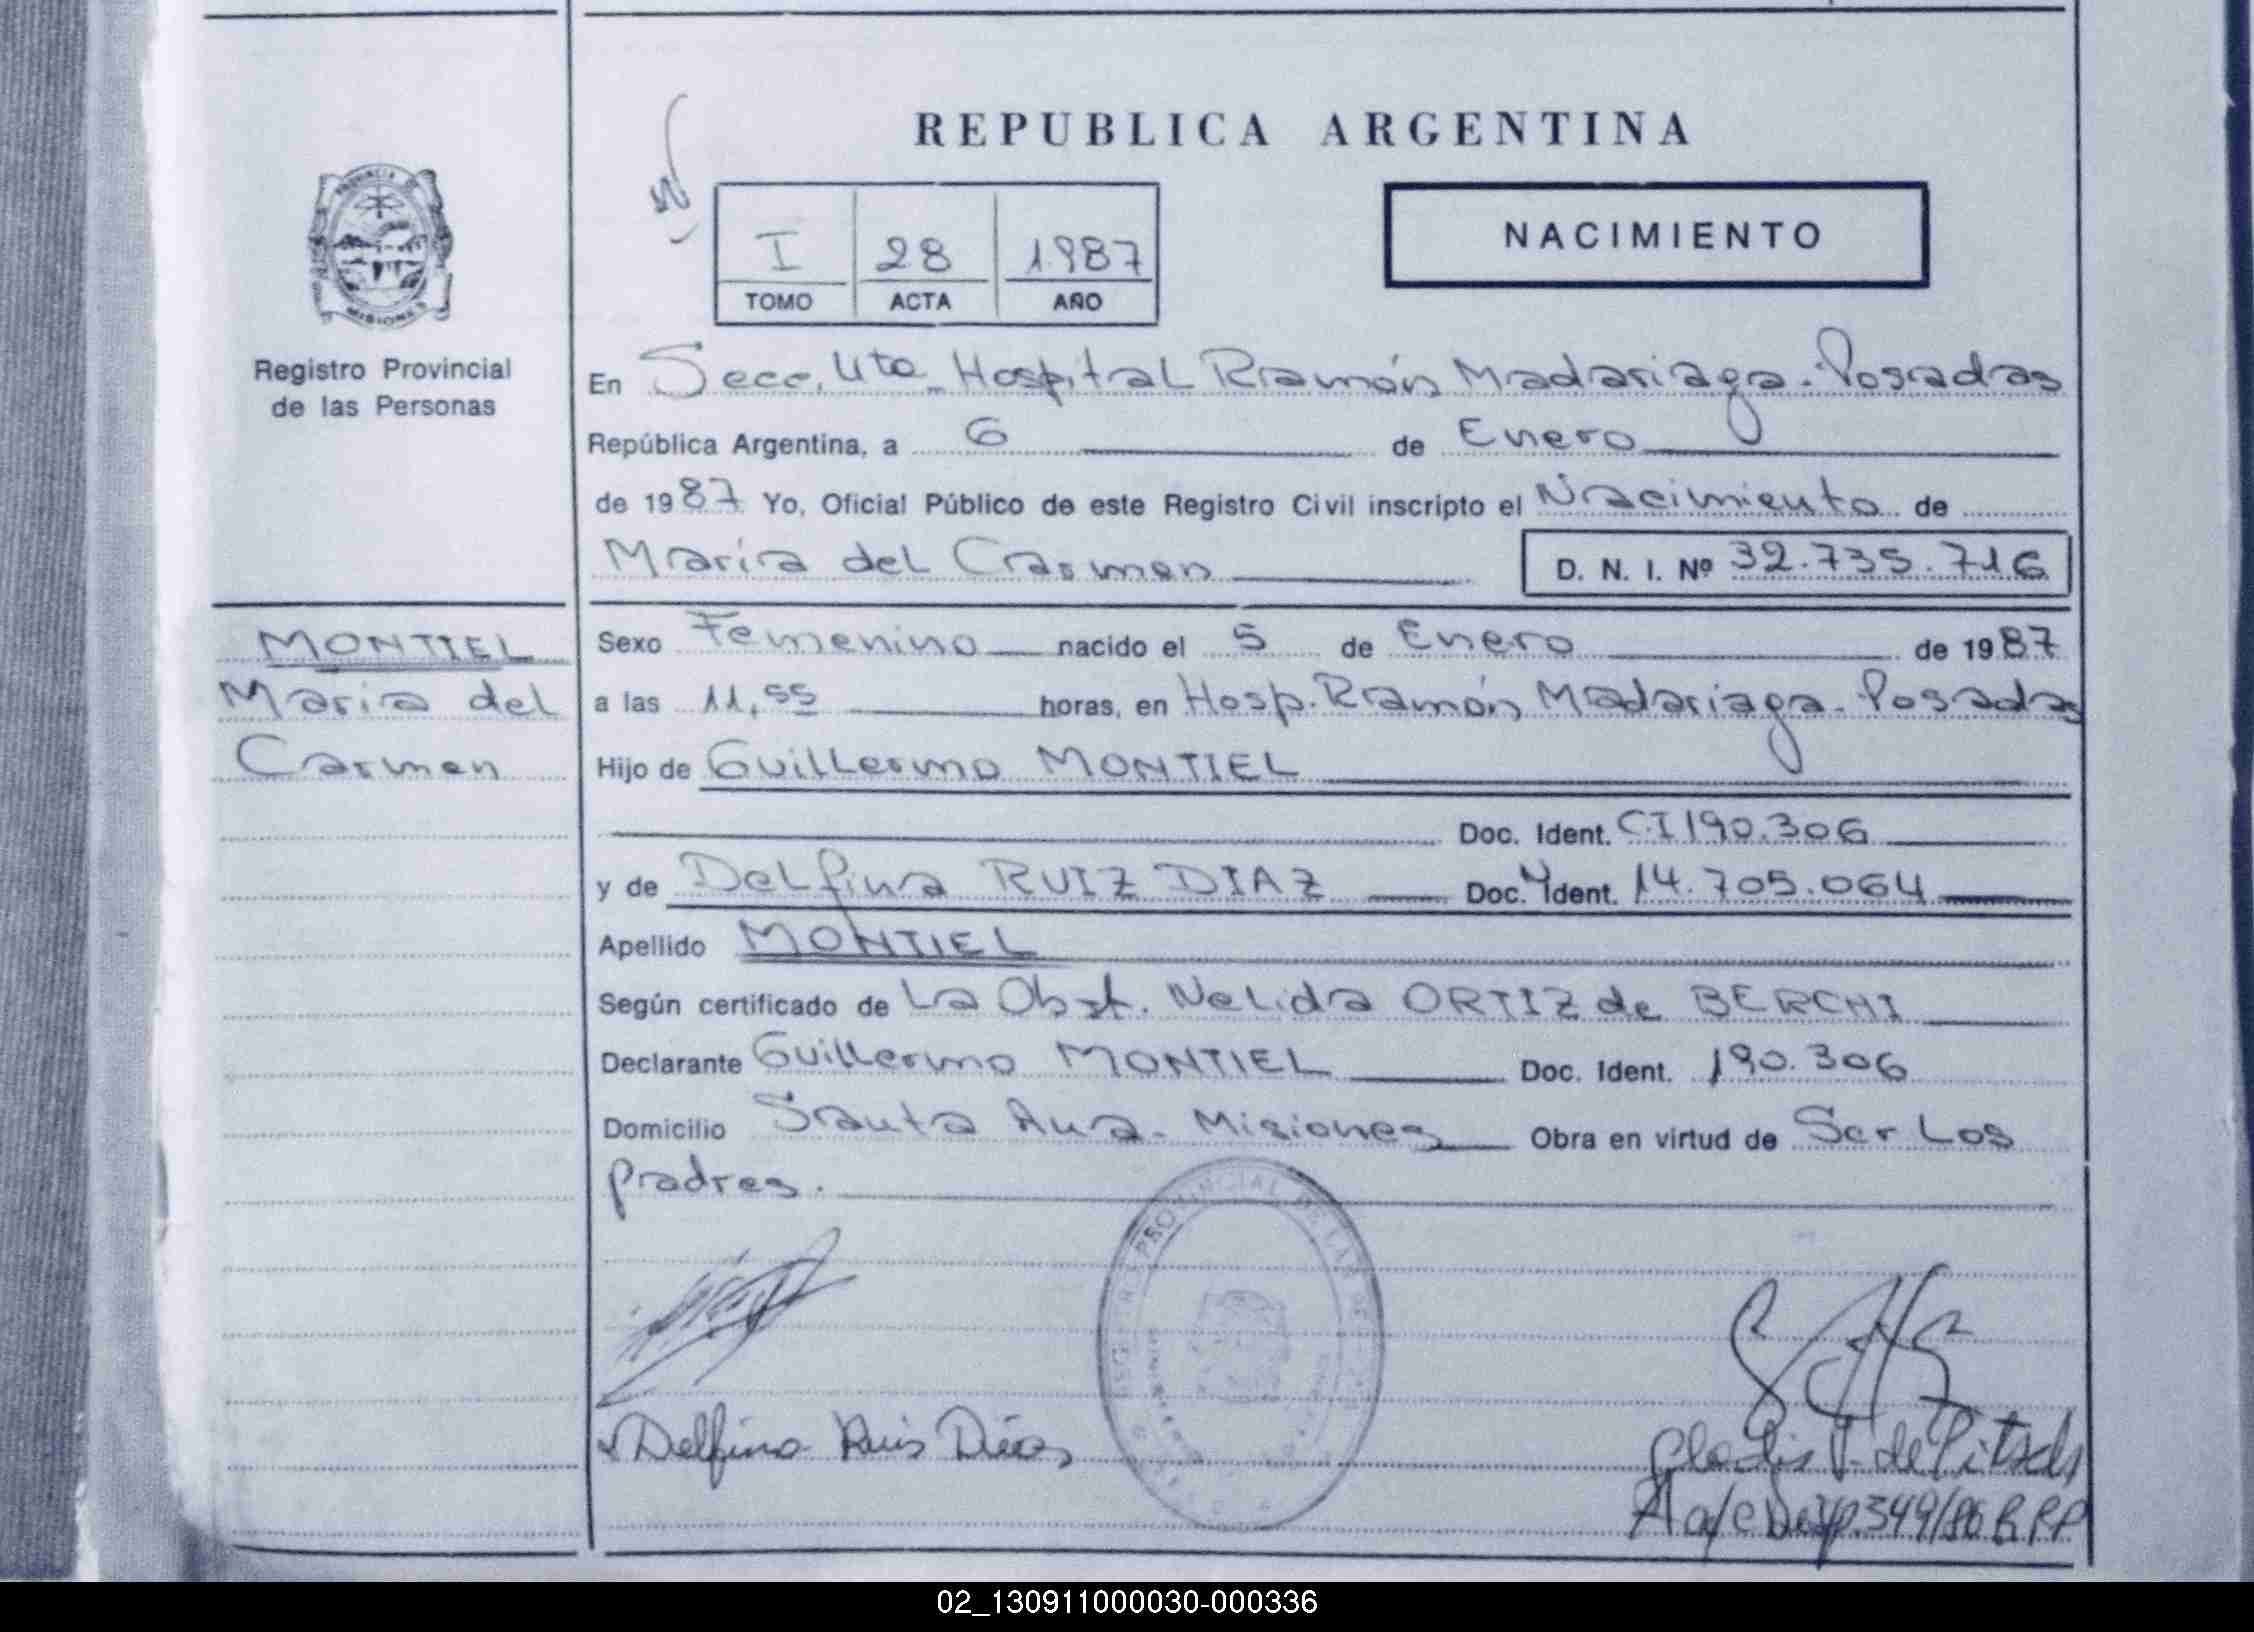 REPUBLICA ARGENTINA
NACIMIENTO
I 28 1987
TOMO ACTA AÑO
PROVINCIA DE
MISIONES
Registro Provincial
de las Personas
MONTIEL
Maria del
Carmen
En Secc. 4ta. Hospital Ramón Madariaga. Posadas
República Argentina, a 6 de Enero
de 1987 Yo, Oficial Público de este Registro Civil inscripto el Nacimiento de
María del Carmen D. N. I. Nº 32.735.716
Sexo Femenino nacido el 5 de Enero de 1987
a las 11,55 horas, en Hosp. Ramón Madariaga. Posadas
Hijo de Guillermo MONTIEL
Doc. Ident. C.I 190.306
y de Delfina RUIZ DIAZ Doc. Ident. 14.705.064
Apellido MONTIEL
Según certificado de La Obst. Nelida ORTIZ de BERCHI
Declarante Guillermo MONTIEL Doc. Ident. 190.306
Domicilio Santa Ana. Misiones Obra en virtud de Ser Los
padres.
PROVINCIAL DE LAS
Delfina Ruis Días
Gladis V. de Pitsch
A a/c Desp. 349/86 R.P.P
02_130911000030-000336